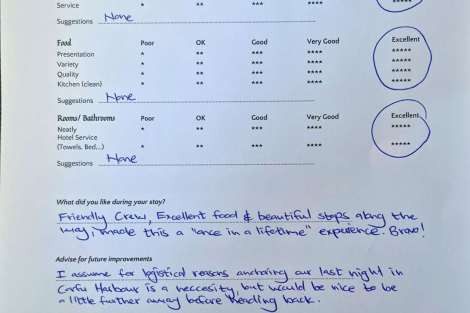 Service * ** *** ****
Suggestions None
Food Poor OK Good Very Good Excellent
Presentation * ** *** **** *****
Variety * ** *** **** *****
Quality * ** *** **** *****
Kitchen (clean) * ** *** **** *****
Suggestions None
Rooms/ Bathrooms Poor OK Good Very Good Excellent
Neatly * ** *** **** *****
Hotel Service
(Towels, Bed...) * ** *** **** *****
Suggestions None
What did you like during your stay?
Friendly Crew, Excellent food & beautiful stops along the
way, made this a "once in a lifetime" experience. Bravo!
Advise for future improvements
I assume for logistical reasons anchoring our last night in
Corfu Harbour is a neccesity, but would be nice to be
a little further away before heading back.